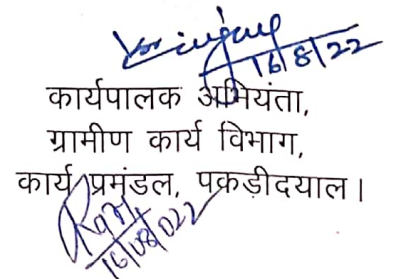 16/8/22
कार्यपालक अभियंता,
ग्रामीण कार्य विभाग,
कार्य प्रमंडल, पकड़ीदयाल।
16/08/022